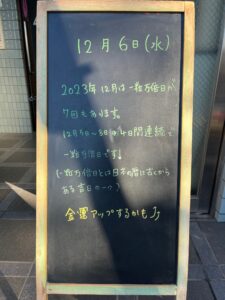 12月6日(水)
2023年12月は一粒万倍日が
7回もあります。
12月5日〜8日は4日間連続で
一粒万倍日です!
(一粒万倍日とは日本の暦に古くから
ある吉日の一つ)
金運アップするかも